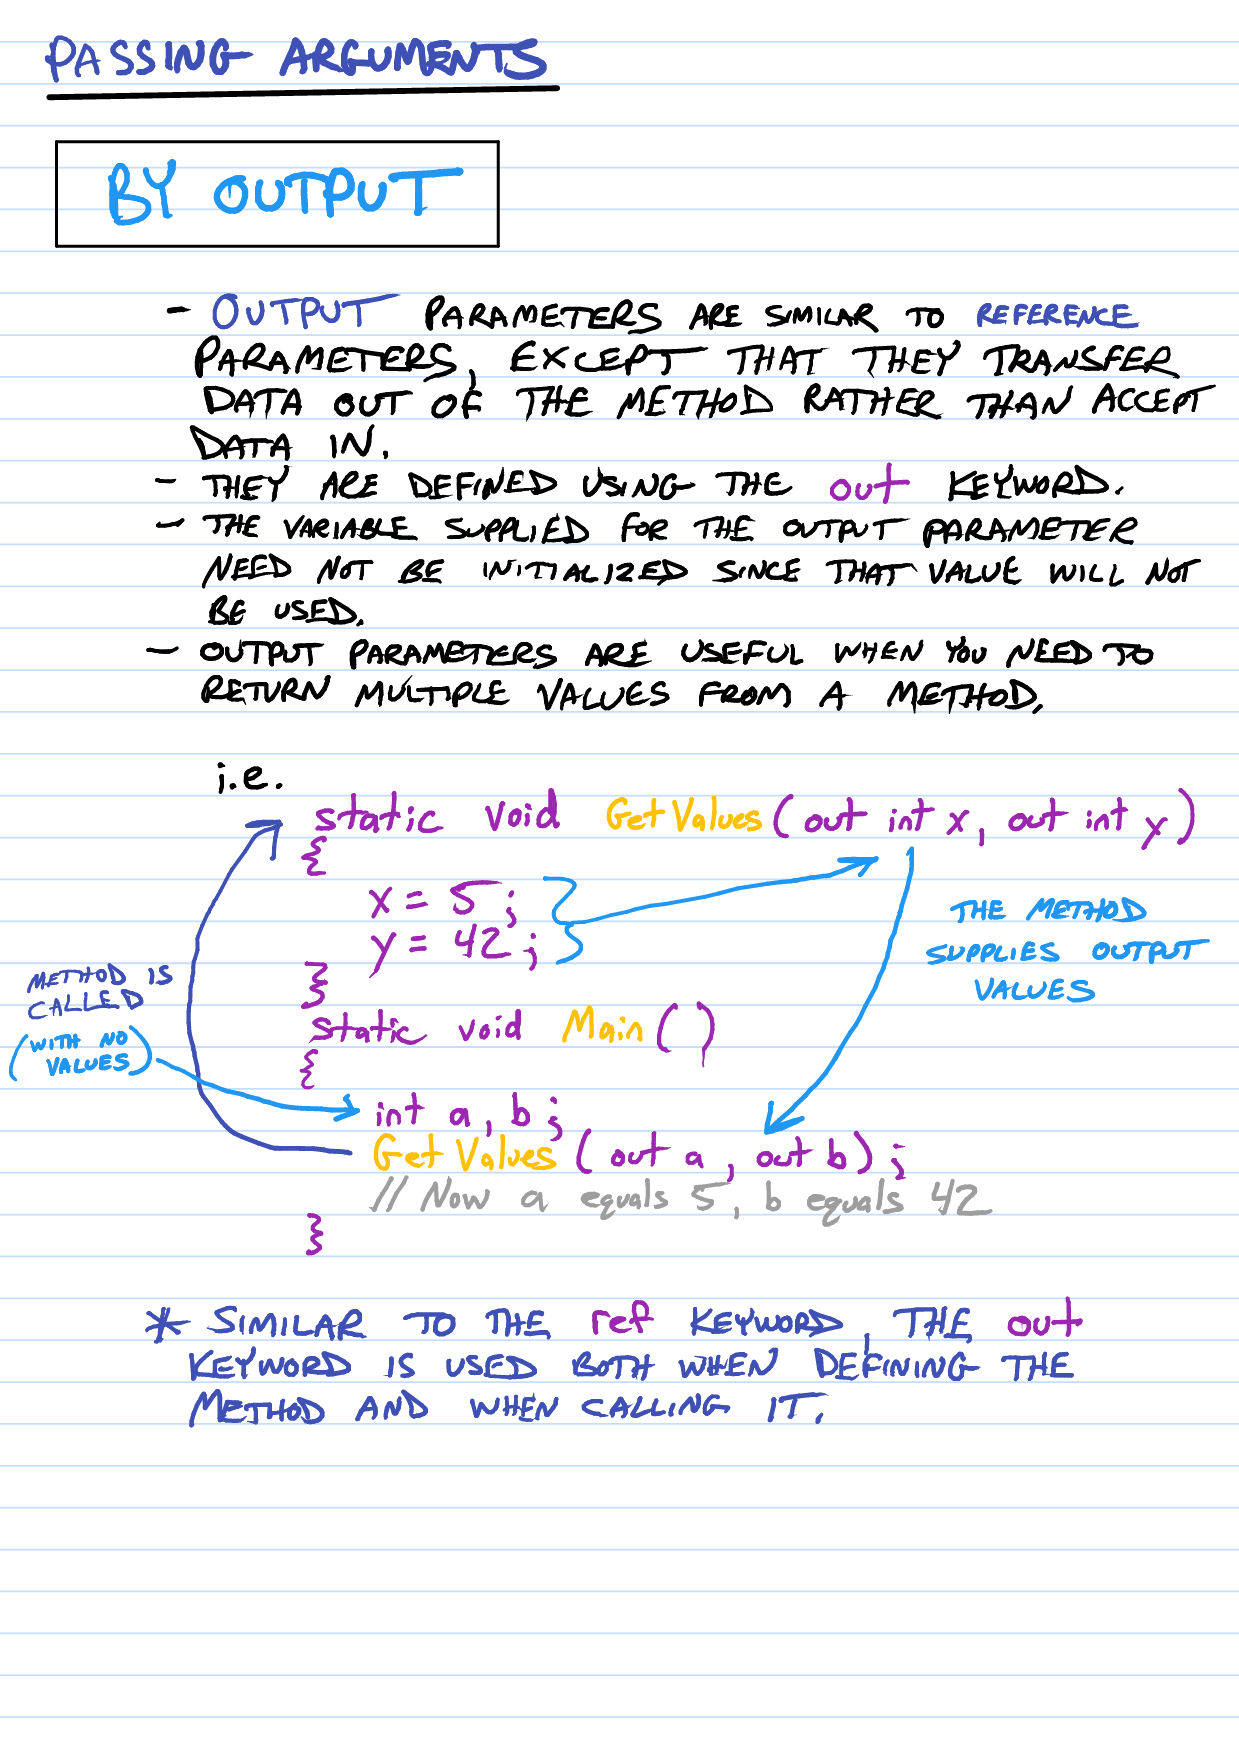 PASSING ARGUMENTS
BY OUTPUT
- OUTPUT PARAMETERS ARE SIMILAR TO REFERENCE
PARAMETERS, EXCEPT THAT THEY TRANSFER
DATA OUT OF THE METHOD RATHER THAN ACCEPT
DATA IN.
- THEY ARE DEFINED USING THE out KEYWORD.
- THE VARIABLE SUPPLIED FOR THE OUTPUT PARAMETER
NEED NOT BE INITIALIZED SINCE THAT VALUE WILL NOT
BE USED.
- OUTPUT PARAMETERS ARE USEFUL WHEN YOU NEED TO
RETURN MULTIPLE VALUES FROM A METHOD.
i.e.
static void GetValues(out int x, out int y)
{
x = 5;
y = 42;
}
THE METHOD
SUPPLIES OUTPUT
VALUES
METHOD IS
CALLED
(WITH NO
VALUES)
static void Main()
{
int a, b;
GetValues(out a, out b);
// Now a equals 5, b equals 42
}
* SIMILAR TO THE ref KEYWORD, THE out
KEYWORD IS USED BOTH WHEN DEFINING THE
METHOD AND WHEN CALLING IT.